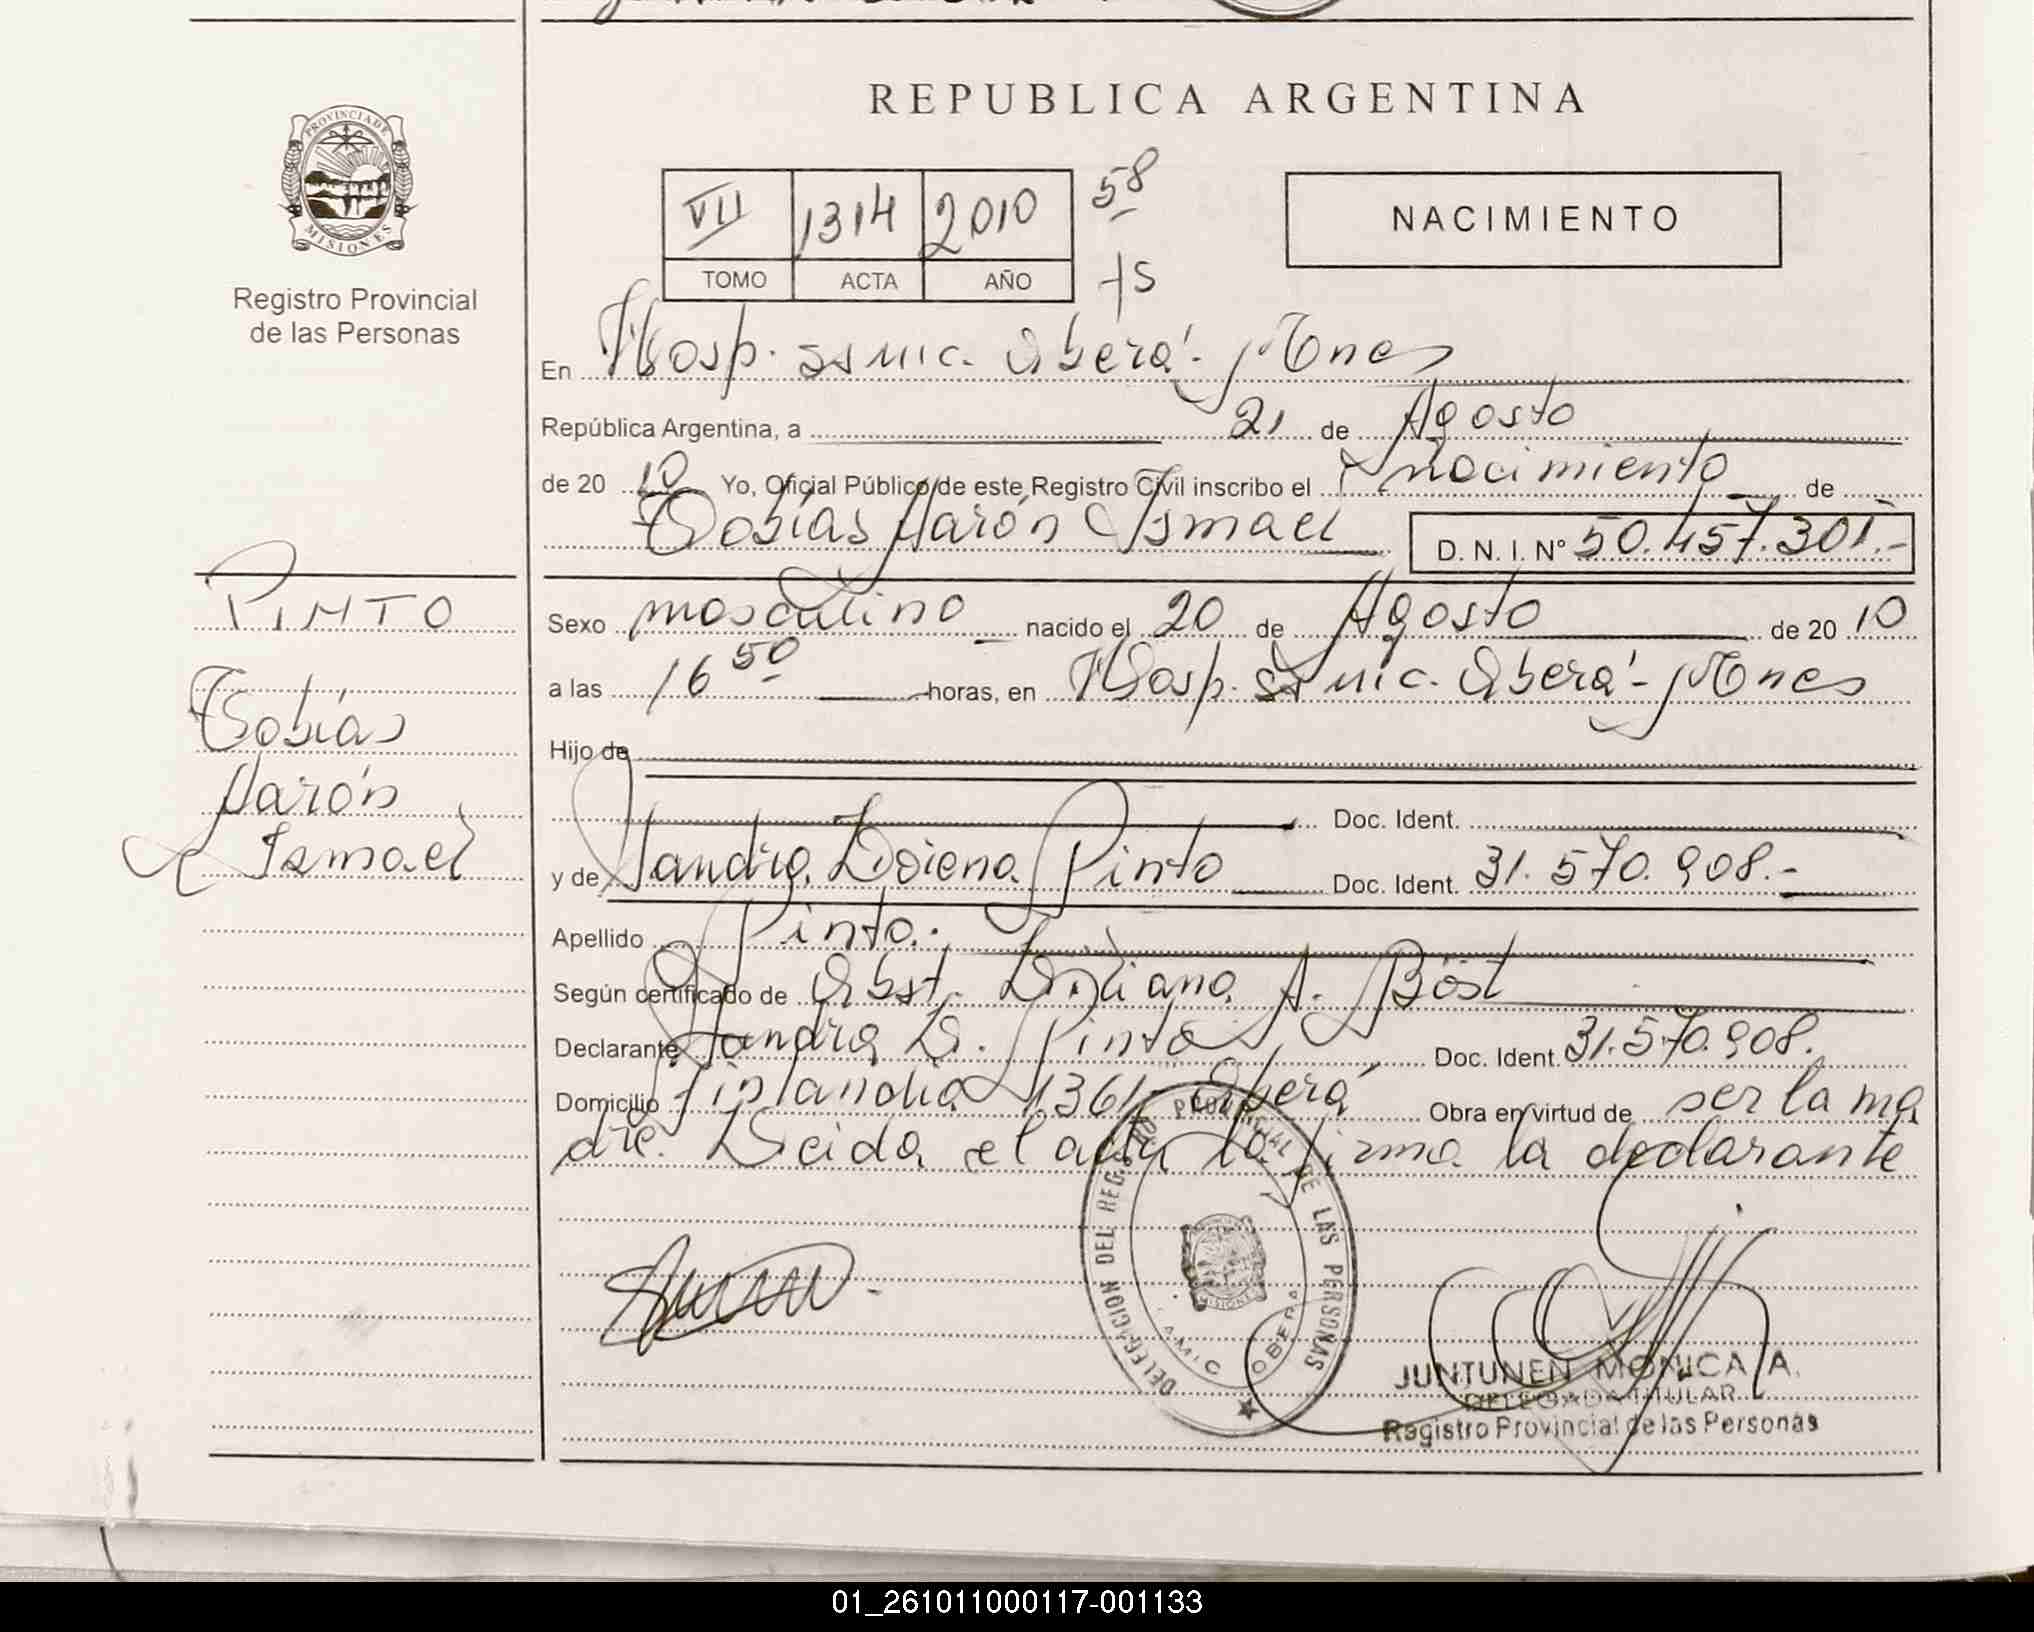 REPUBLICA ARGENTINA
PROVINCIA DE
MISIONES
Registro Provincial
de las Personas
VII 1314 2010 58
TOMO ACTA AÑO
NACIMIENTO
En Hosp. Oberá - Mnes
República Argentina, a 21 de Agosto
de 20 10 Yo, Oficial Público de este Registro Civil inscribo el nacimiento de
Tobías Aarón Ismael D. N. I. Nº 50.457.301.-
PINTO
Tobías
Aarón
Ismael
Sexo masculino nacido el 20 de Agosto de 20 10
a las 16 50 horas, en Hosp. Oberá - Mnes
Hijo de
Doc. Ident.
y de Sandra Pinto Doc. Ident. 31.570.908.-
Apellido Pinto.
Según certificado de Obst. A. Bost
Declarante Sandra D. Pinto Doc. Ident. 31.570.908.
Domicilio Finlandia 1361 - Oberá Obra en virtud de ser la ma
dre. Leida el acta la firma la declarante
DELEGACION DEL REGISTRO PROVINCIAL DE LAS PERSONAS
MISIONES
OBERA
JUNTUNEN MONICA A.
DELEGADA TITULAR
Registro Provincial de las Personas
01_261011000117-001133